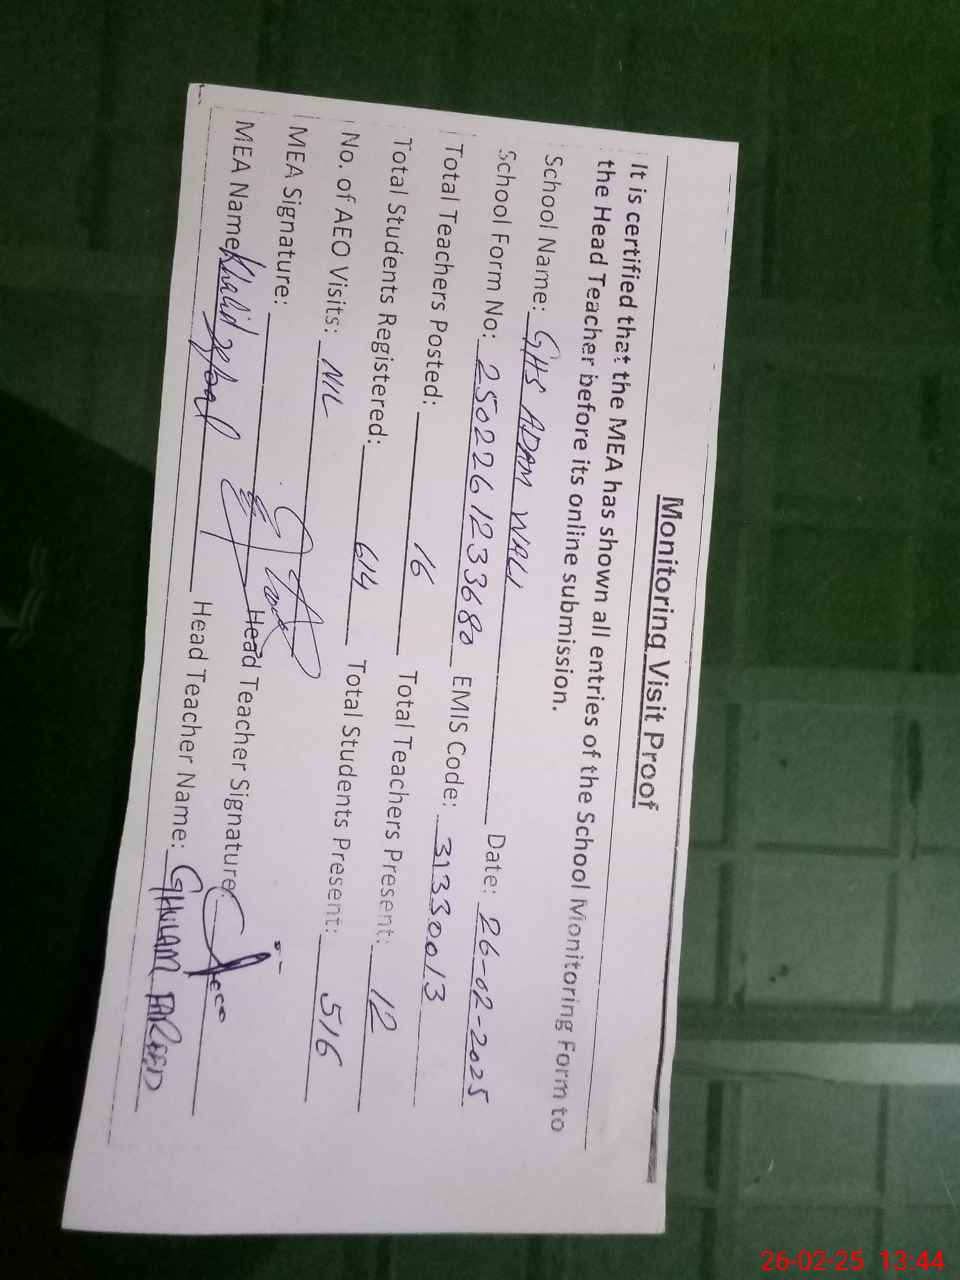 Monitoring Visit Proof
It is certified that the MEA has shown all entries of the School Monitoring Form to
the Head Teacher before its online submission.
School Name: GHS ADAM WALI Date: 26-02-2025
School Form No: 2502261233680 EMIS Code: 31330013
Total Teachers Posted: 16 Total Teachers Present: 12
Total Students Registered: 614 Total Students Present: 516
No. of AEO Visits: NIL
MEA Signature: Head Teacher Signature:
MEA Name: Khalid Iqbal Head Teacher Name: GHULAM FAREED
26-02-25 13:44